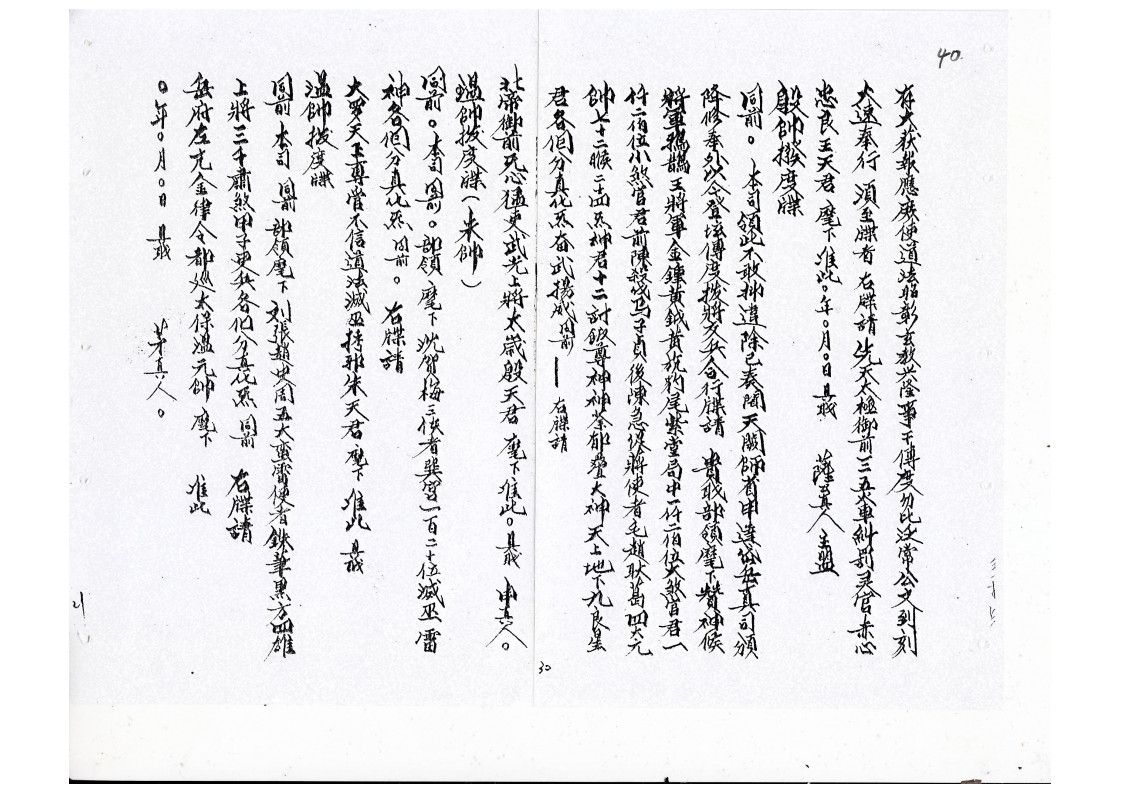 40
有大获報應廰使道法昭彰玄教興隆事干傳度勿比泛常公文到刻
火速奉行 須至牒者 右牒請 先天太極御前三五火車糾罰灵官赤心
忠良王天君 麾下 准此 〇年〇月〇日 具職 薩真人主盟
殷帥撥度牒
同前。本司領此不敢抻違除已奏聞 天闕師省申達岱岳真司頒
降修奉外以今登坛傳度撥將交兵合行牒請 貴職部領麾下
將軍 王將軍金鍾黃鉞黃旛豹尾紫堂局中一仟二佰位大煞官君一
仟二佰位小煞官君前陳殺伐馬子貞後陳急捉蔣使者毛趙耿葛四大元
帥七十二候二十四炁神君十二 神荼郁壘大神天上地下九良星
君各伺分真化炁奋武揚威同前 — 右牒請
30
北帝御前 猛吏武光上將太歲殷天君 麾下准此。具職 申真人。
溫帥撥度牒（朱帥）
同前。本司 同前。部領 麾下 沈賀梅三使者 一百二十位滅巫雷
神各伺分真化炁 同前。右牒請
大罗天王尊 不信道法滅巫 邪朱天君 麾下 准此 具職
溫帥撥度牒
同前 本司 同前 部領麾下 刘張趙史周五大蛮雷使者鉄筆 四雄
上將三千肅煞甲子吏兵各化分真化炁 同前 右牒請
岳府左元金律令都巡太保溫元帥 麾下 准此
〇年〇月〇日 具職 茅真人。